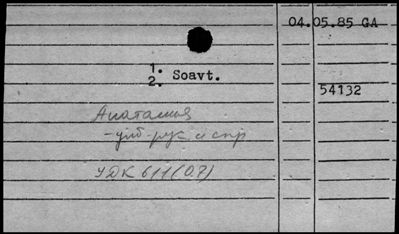 04.05.85 GA
1. Soavt.
2.
54132
Анатомия
УДК 611(07)